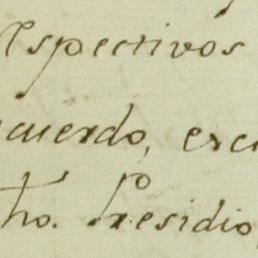 respectivos
cuerdo, exc
tho. Presidio,